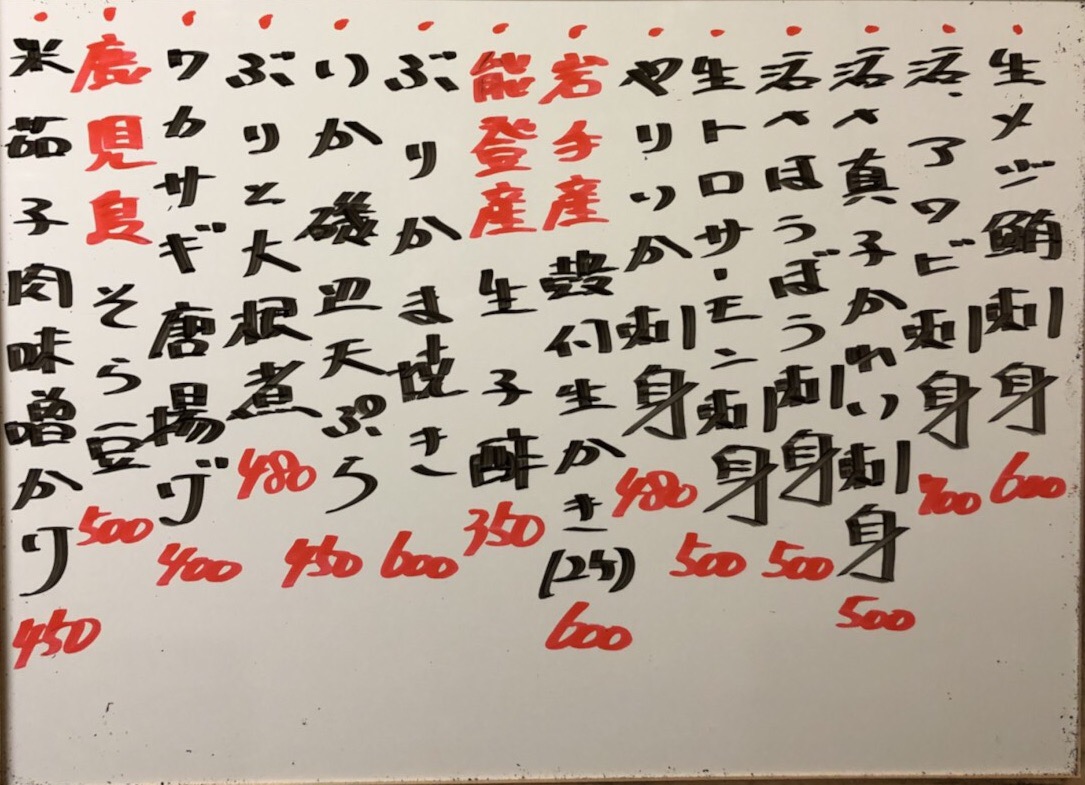 生メジ鮪刺身 600
活アワビ刺身 700
活〆真子かれい刺身 500
活〆ほうぼう刺身 500
生トロサーモン刺身 500
やりいか刺身 480
岩手産殻付生かき(2ケ) 600
能登産生子酢 350
ぶりかま焼き 600
いか磯辺天ぷら 450
ぶりと大根煮 480
ワカサギ唐揚げ 400
鹿児島そら豆 500
米茄子肉味噌かけ 450